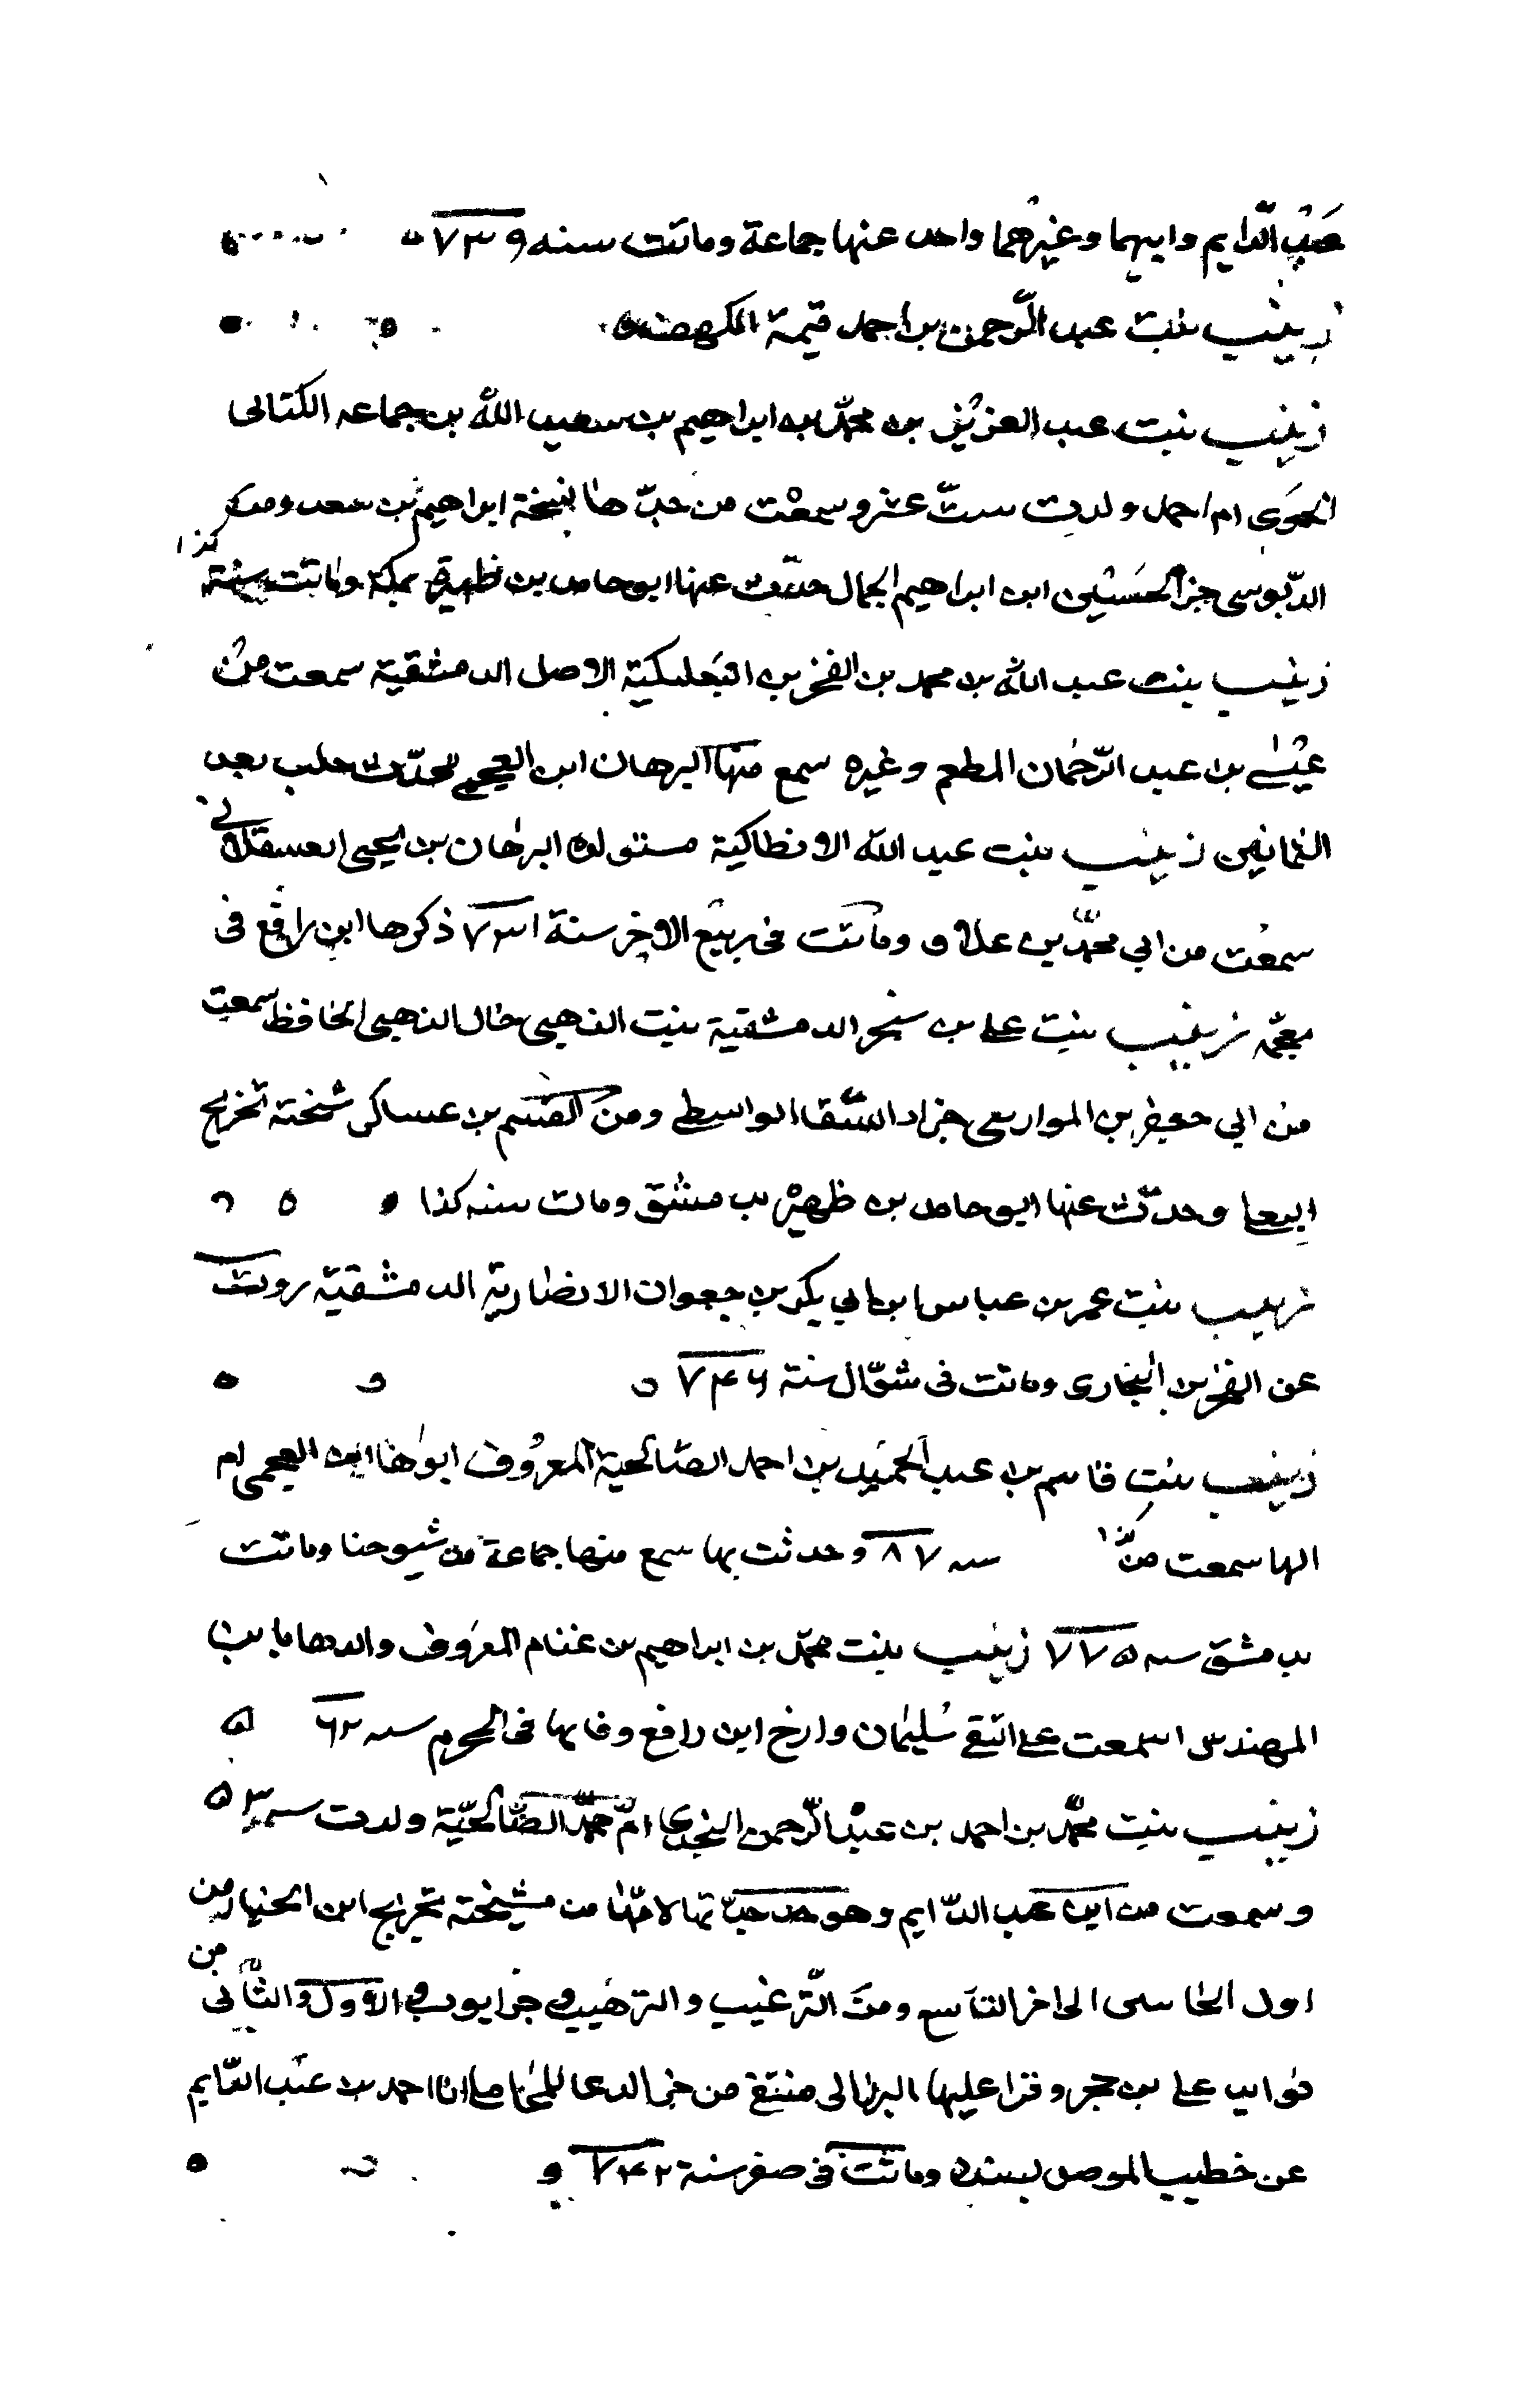 عبد الدّايم وابيهما وغيرهما واحد عنها جماعة وماتت سنه ٧٣٩
زينب بنت عبد الرّحمن بن احمد قيمة الكهف
زينب بنت عبد العزيز بن محمّد بن ابراهيم بن سعد اللّه بن جماعه الكنانى
الحموى ام احمد ولدت ستّ عشر وسمعت من جدّها نسخة ابراهيم بن سعد ومن
الدّبوسى جزء الحسين ابن ابراهيم الجمال حدّثت عنها ابو حامد بن ظهيرة بمكة وماتت سنة كذا
زينب بنت عبد اللّه بن محمد بن الفخر بن البعلبكية الاصل الدمشقية سمعت من
عيسٰے بن عبد الرّحمان المطعم وغيره سمع منها البرهان ابن العجمے محدّث حلب بعد
الثمانين زينب بنت عبد اللّه الانطاكية مستولدة البرهان بن يحيى العسقلانے
سمعت من ابي محمّد بن علاق وماتت فى ربيع الاخر سنة ٧٣١ ذكرها ابن رافع فى
معجمه زينب بنت علے بن سنجر الدمشقية بنت الذهبى خال الذهبى الحافظ سمعت
من ابي جعفر بن الموارسى جزاد السّقا الواسطے ومن القسم بن عساكر شيخته تخريج
ايبعا وحدّثت عنها ابو حامد بن ظهيرة بدمشق ومات سنه كذا
زينب بنت عمر بن عباس ابن ابي بكر بن جعوان الانصارية الدمشقية روت
عن الفخر بن البخارى وماتت فى شوّال سنة ٧٤٦
زينب بنت قاسم بن عبد الحميد بن احمد الصّالحية المعروف ابوها ابن العجمى ام
الها سمعت من كذا سنه ٨٧ وحدثت بها سمع منها جماعة من شيوخنا وماتت
بدمشق سنه ٧٧٥ زينب بنت محمّد بن ابراهيم بن غنام المعروف والدها بابن
المهندس اسمعت علے التقے سليمان وارخ ابن رافع وفاتها فى المحرم سنه ٦٢
زينب بنت محمّد بن احمد بن عبد الرّحمن البجدى امّ محمّد الصّالحيّة ولدت سنه
وسمعت من ابن عبد الدّايم وهو جد جدّتها لامّها من مشيخته تخريج ابن الخباز من
اول الخامس الى اخر التاسع ومن التّرغيب والترهيب وجزء ايوب الاول والثّانى من
فوايد علے بن حجر وقرا عليها البرزالى منتقى من جزء الدعا للمحاملے انا احمد بن عبد الدّايم
عن خطيب الموصل بسنده وماتت فى صفر سنة ٧٤٢